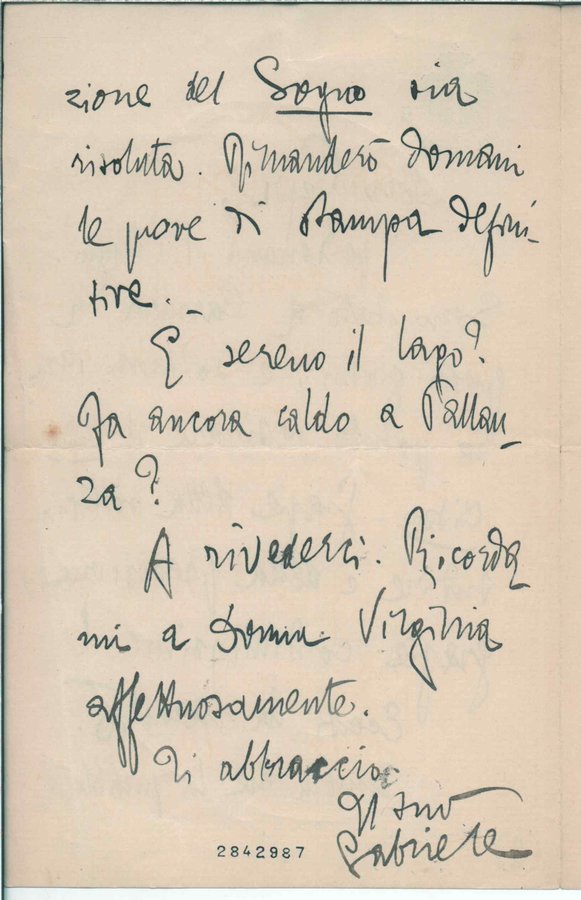 zione del Sogno sia
risoluta. Rimanderò domani
le prove di stampa defini-
tive.
È sereno il lago?
Fa ancora caldo a Pallan-
za?
A rivederci. Ricorda
mi a Donna Virginia
affettuosamente.
Ti abbraccio
Il tuo
Gabriele
2842987